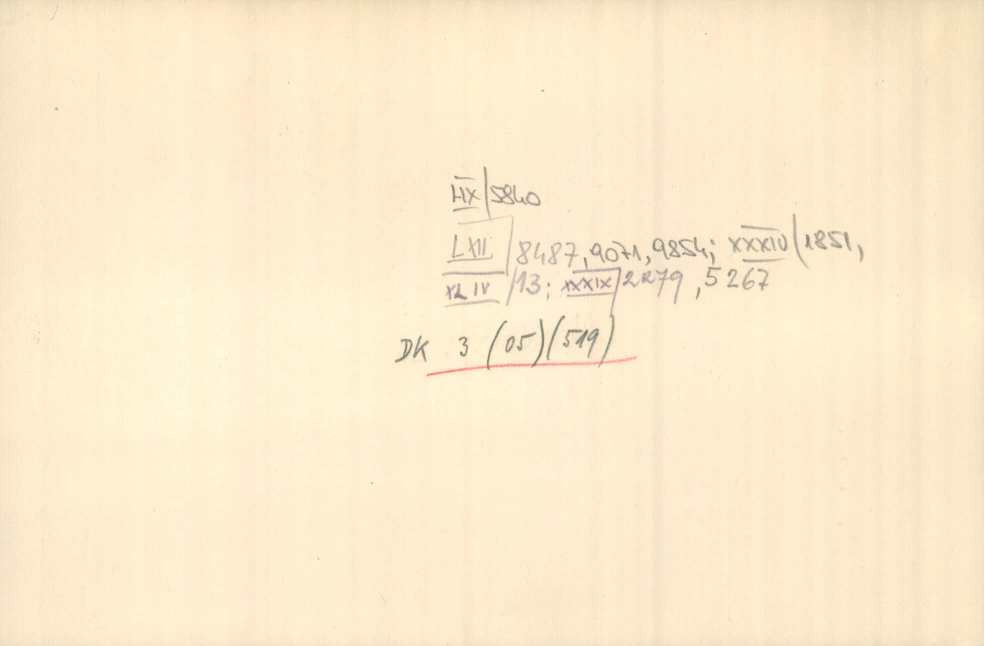 IIX/5840
LXII/8487, 9071, 9854; XXXIV/1851,
XLIV/13; XXXIX/2279, 5267
DK 3 (05)(519)